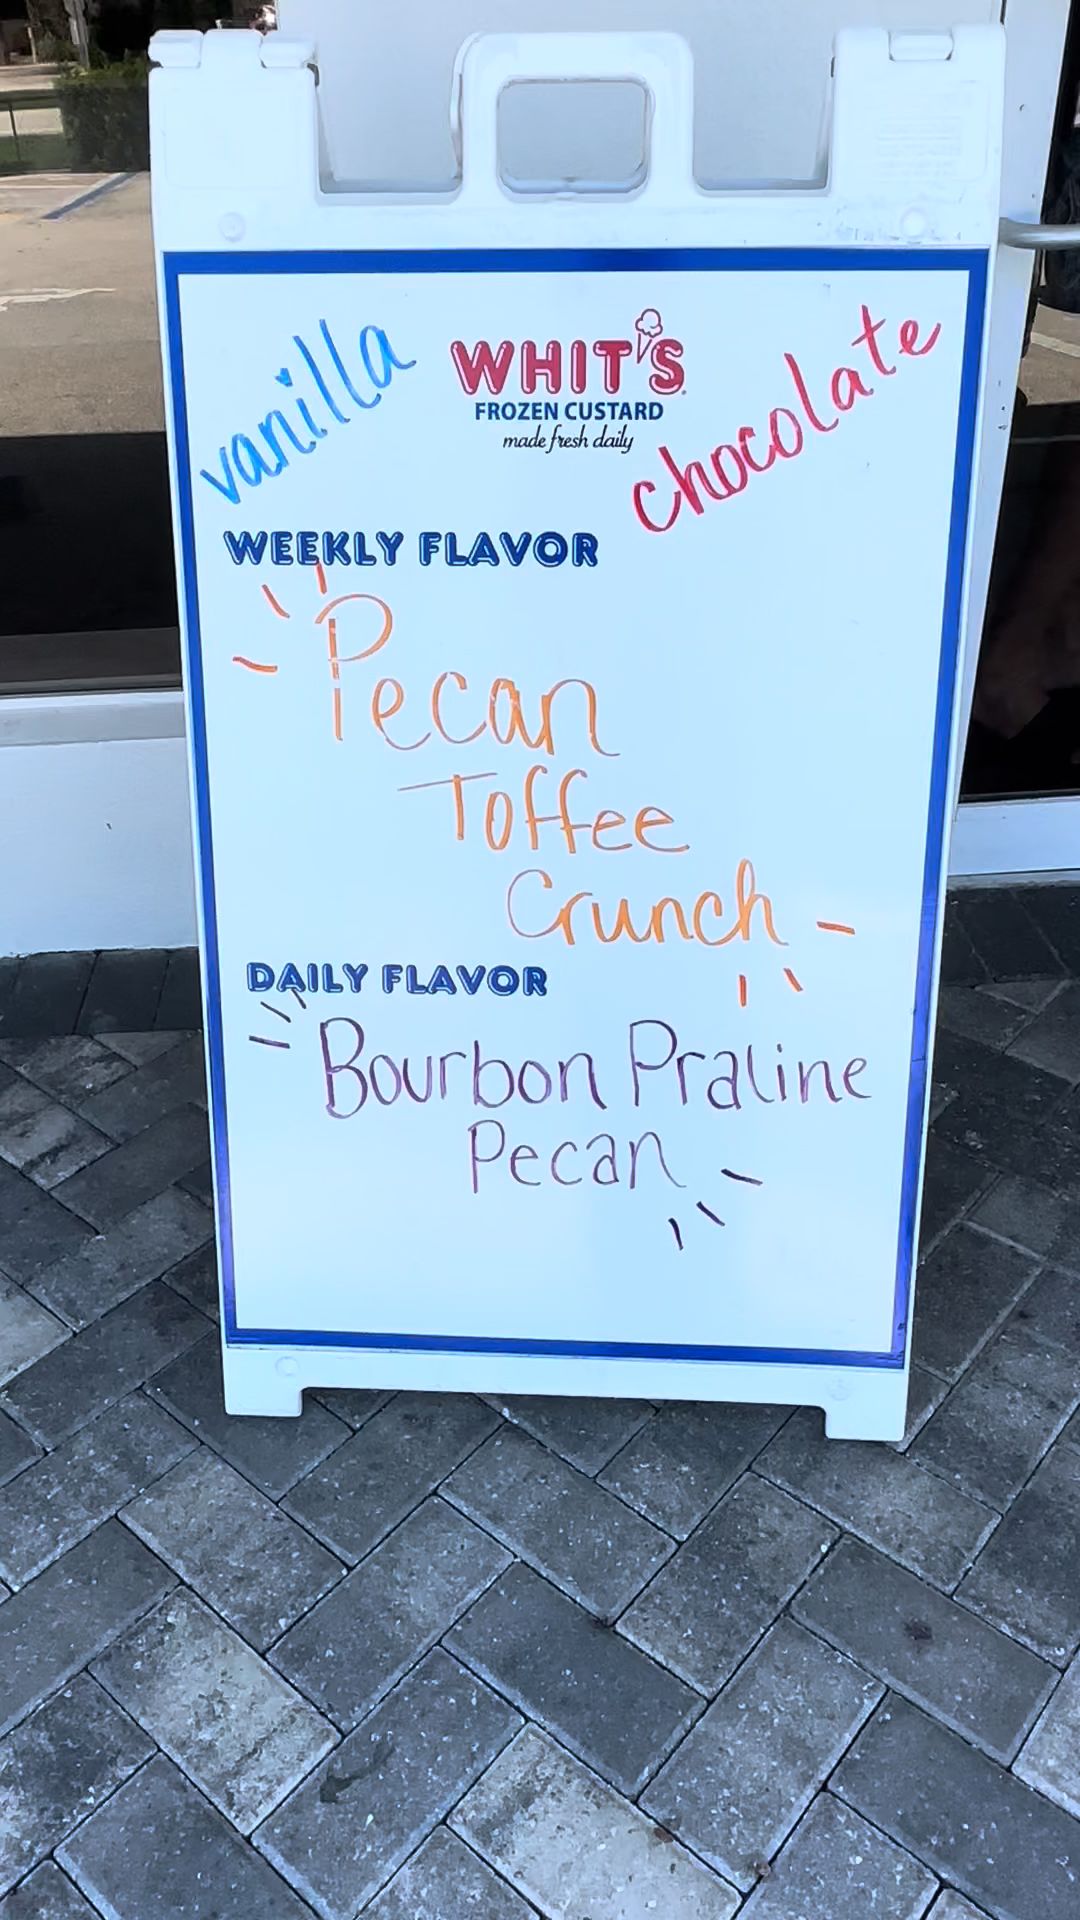 vanilla
WHIT'S
FROZEN CUSTARD
made fresh daily
chocolate
WEEKLY FLAVOR
Pecan
Toffee
Crunch
DAILY FLAVOR
Bourbon Praline
Pecan